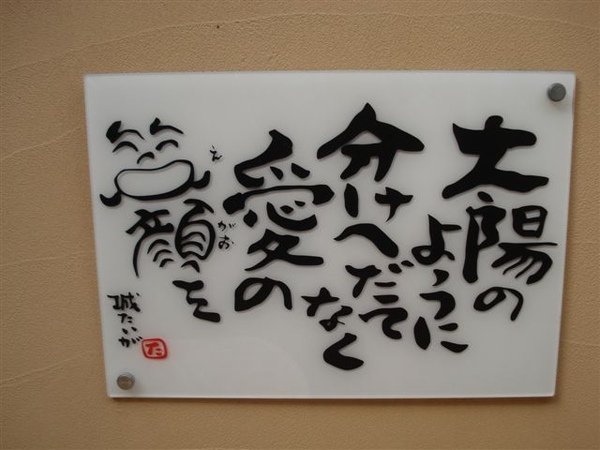 太陽の
ように
分けへだて
なく
愛の
笑顔を
えがお
城たいが
た